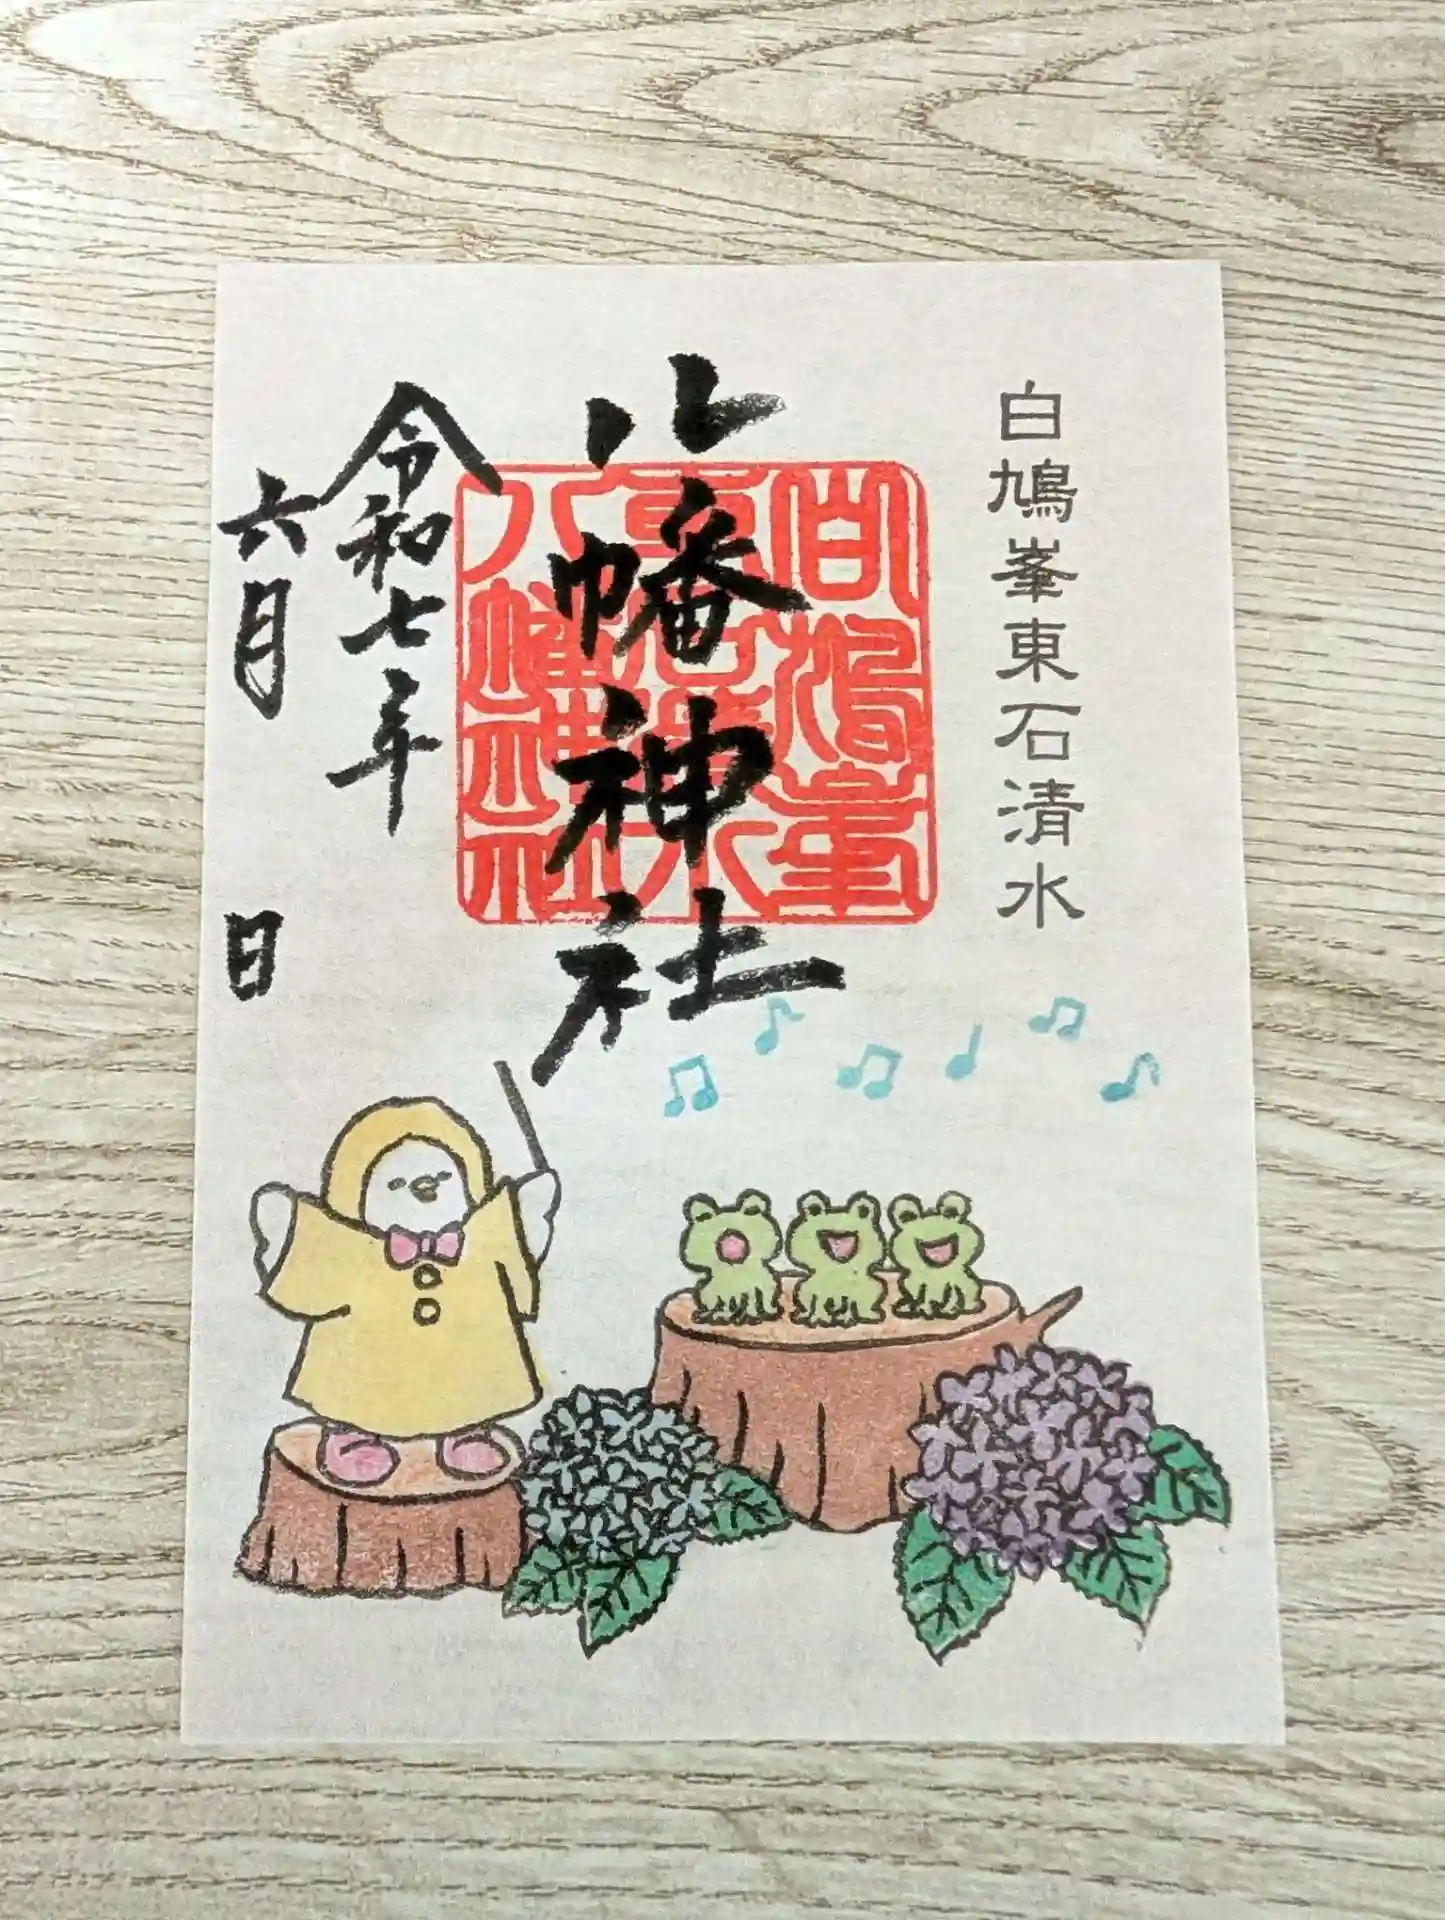 白鳩峯東石清水
八幡神社
令和七年
六月 日
白鳩峯
東石清水
八幡神社